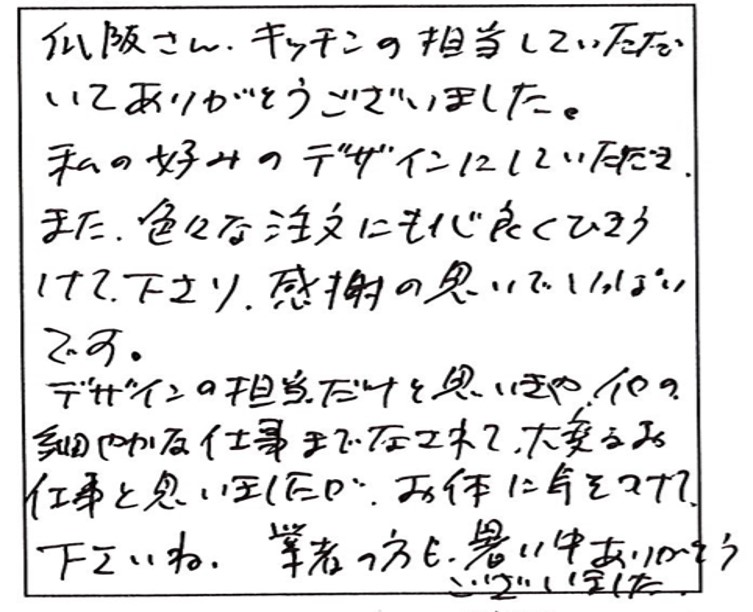 仙阪さん、キッチンの担当していただ
いてありがとうございました。
私の好みのデザインにしていただき、
また、色々な注文にも心良くひきう
けて、下さり、感謝の思いでいっぱい
です。
デザインの担当だけと思いきや、他の
細やかな仕事までなされて、大変なお
仕事と思いましたが、お体に気をつけて、
下さいね。 業者の方も、暑い中ありがとう
ございました。